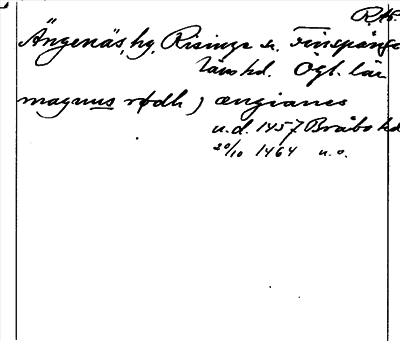 R., tk.
Ängenäs, hg, Risinge sn. Finspånga
läns hd. Ögl. län
magnus rødh ) ængianes
u.d. 1457 Bråbo hd
20/10 1464 u.o.